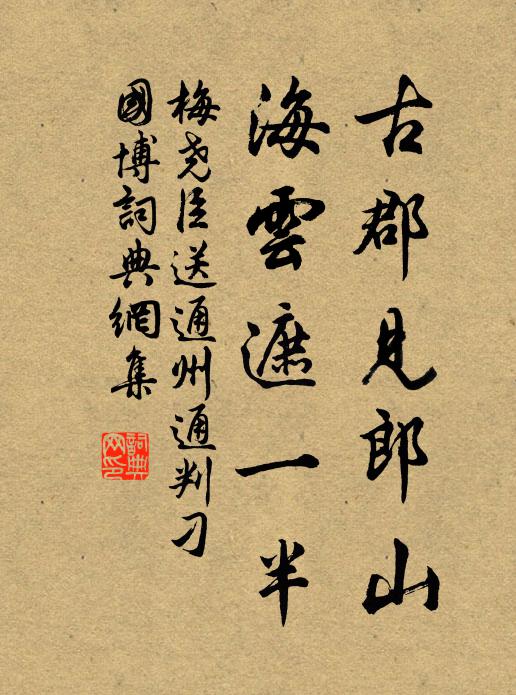 古郡見郎山
海雲遮一半
梅尧臣送通州通判刁
國博詞典網集
詞典
网印